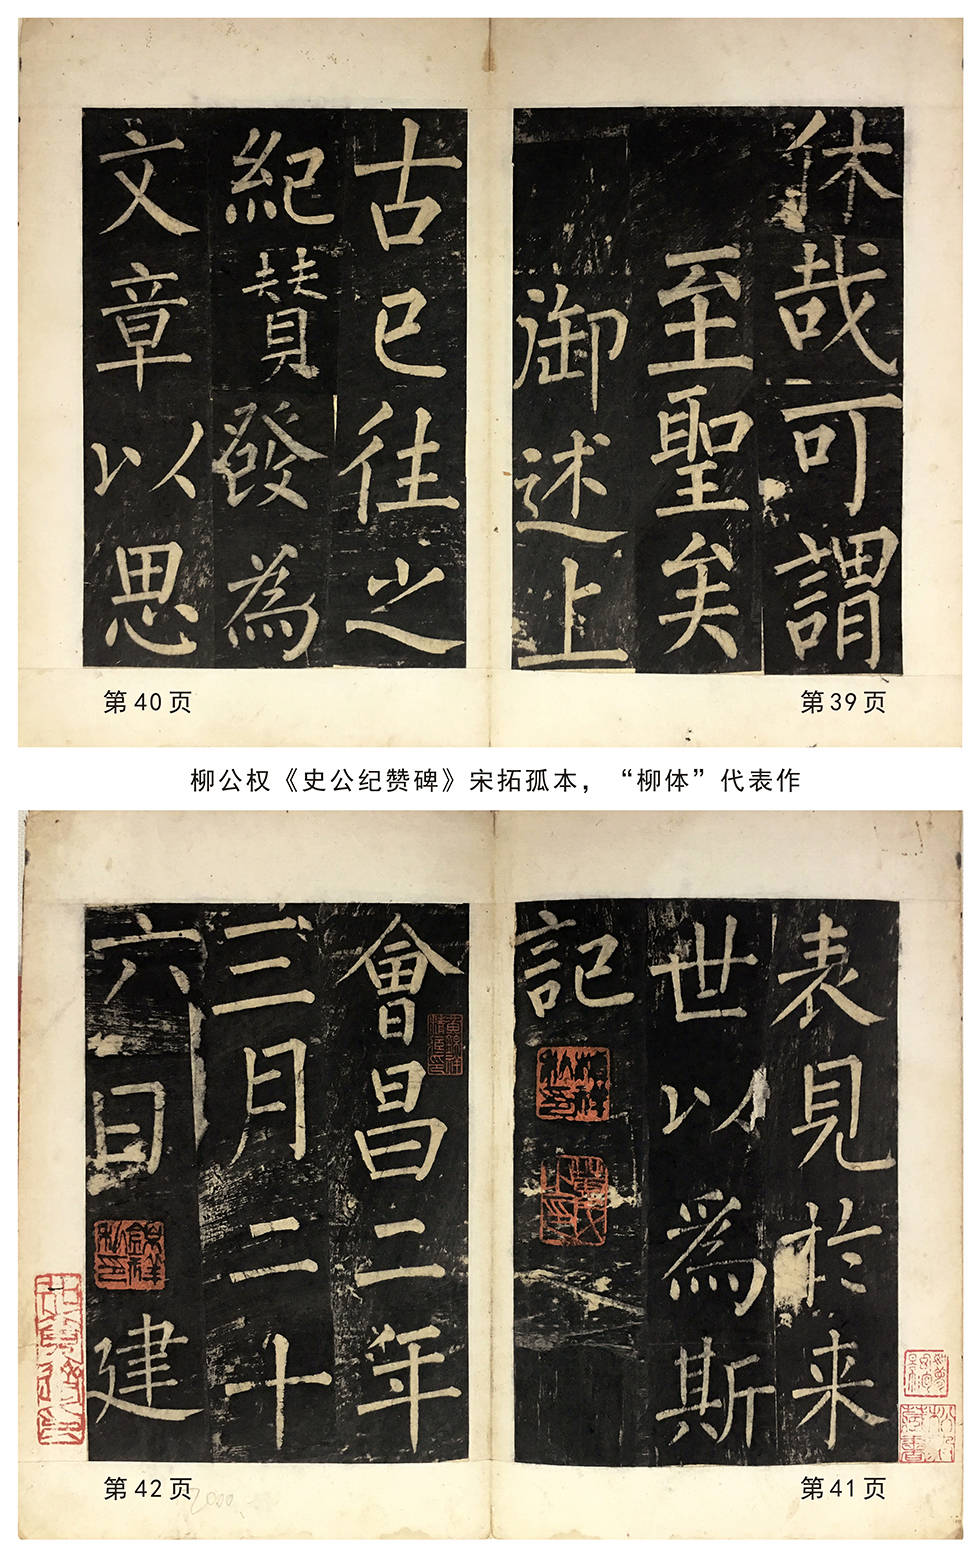 休哉可謂
至聖矣
御述上
古已往之
紀賛發為
文章以思
第39页
第40页
柳公权《史公纪赞碑》宋拓孤本，“柳体”代表作
表見於来
世以為斯
記
會昌二年
三月二十
六日建
第41页
第42页